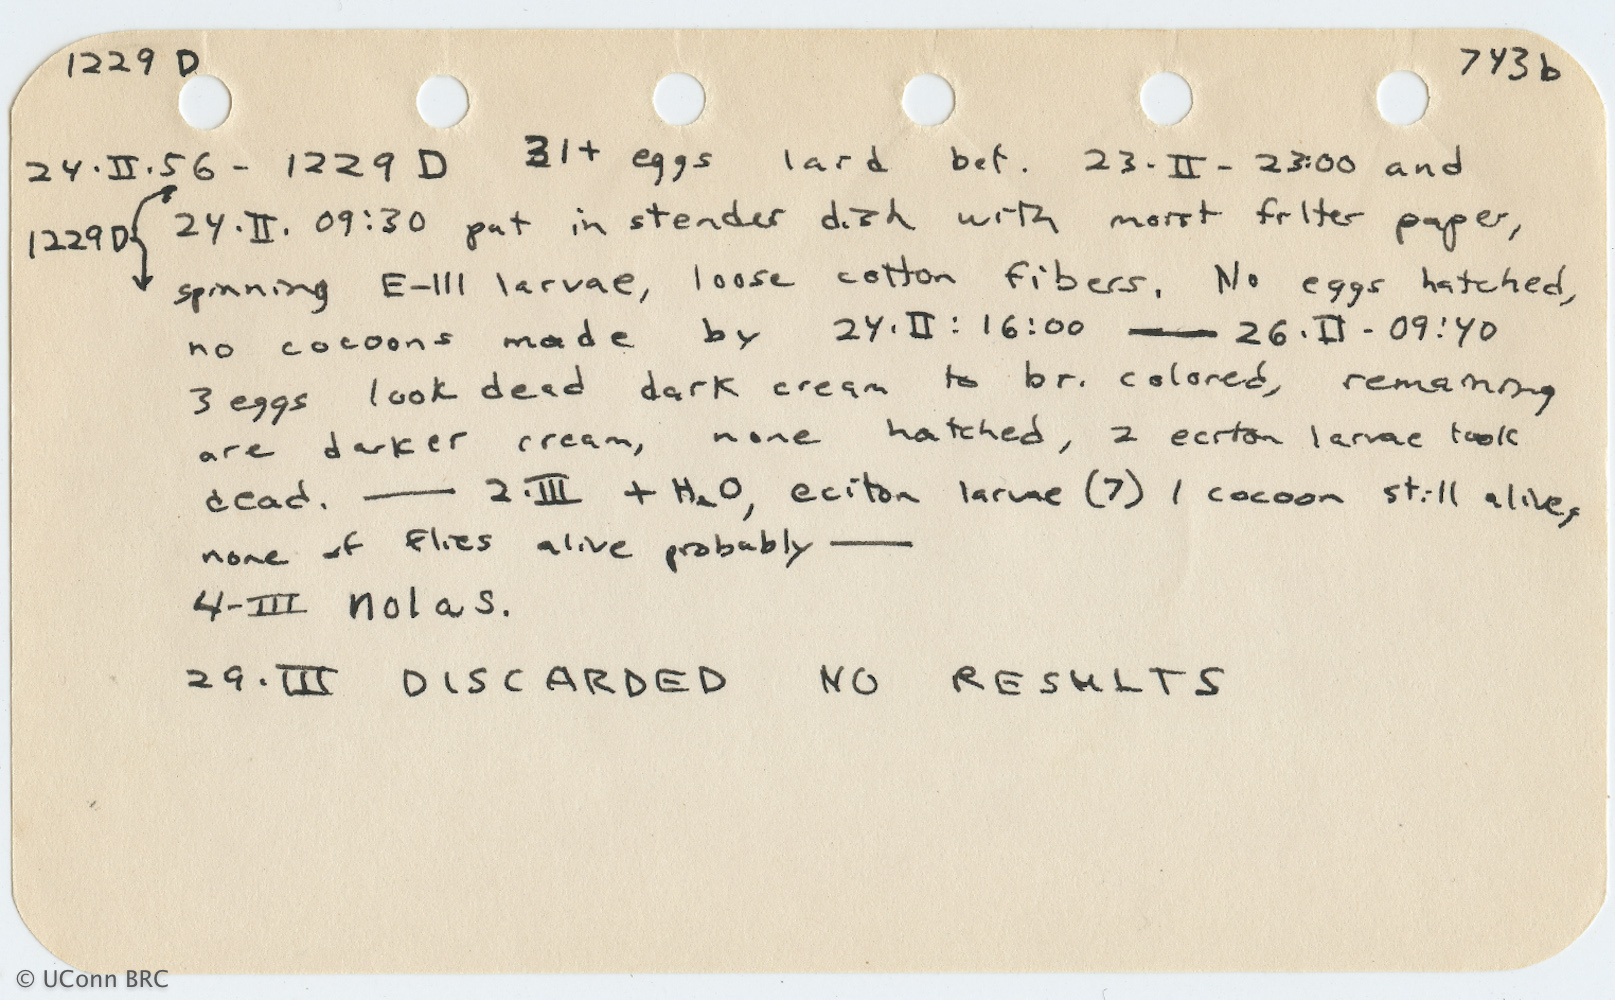 1229 D 743b
24.II.56 - 1229 D 31+ eggs laid bet. 23.II - 23:00 and
1229D 24.II. 09:30 put in stender dish with moist filter paper,
spinning E-III larvae, loose cotton fibers. No eggs hatched,
no cocoons made by 24.II : 16:00 — 26.II - 09:40
3 eggs look dead dark cream to br. colored, remaining
are darker cream, none hatched, 2 eciton larvae look
dead. — 2.III + H2O, eciton larvae (7) 1 cocoon still alive,
none of flies alive probably —
4-III
29.III DISCARDED NO RESULTS
© UConn BRC